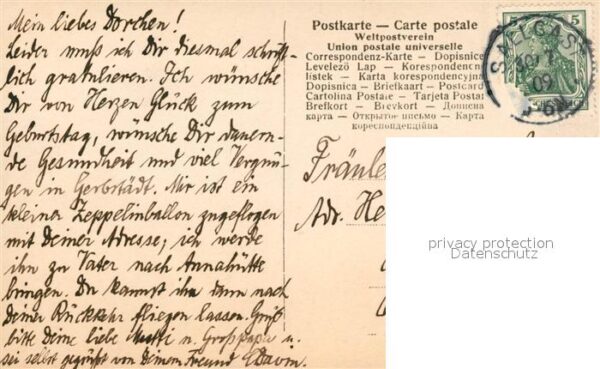 Mein liebes Dorchen!
Leider muß ich Dir diesmal schrift-
lich gratulieren. Ich wünsche
Dir von Herzen Glück zum
Geburtstag, wünsche Dir dauern-
de Gesundheit und viel Vergnü-
gen in Gerbstädt. Mir ist ein
kleiner Zeppelinballon zugeflogen
mit Deiner Adresse; ich werde
ihn zu Vater nach Annahütte
bringen. Du kannst ihn dann nach
Deiner Rückkehr fliegen lassen. Grüß
bitte Deine liebe Mutti u. Großpapa u.
sei selbst gegrüßt von Deinem Freund
Postkarte — Carte postale
Weltpostverein
Union postale universelle
Correspondenz-Karte — Dopisnice
Levelező Lap — Korespondenc
listek — Karta korespondencyjna
Dopisnica — Briefkaart — Postcard
Cartolina Postale — Tarjeta Postal
Brefkort — Brevkort — Дописна
карта — Открытое письмо — Карта
кореспонденційна
5 5
SALLGAST
09
Fräulein
Adr. He
privacy protection
Datenschutz